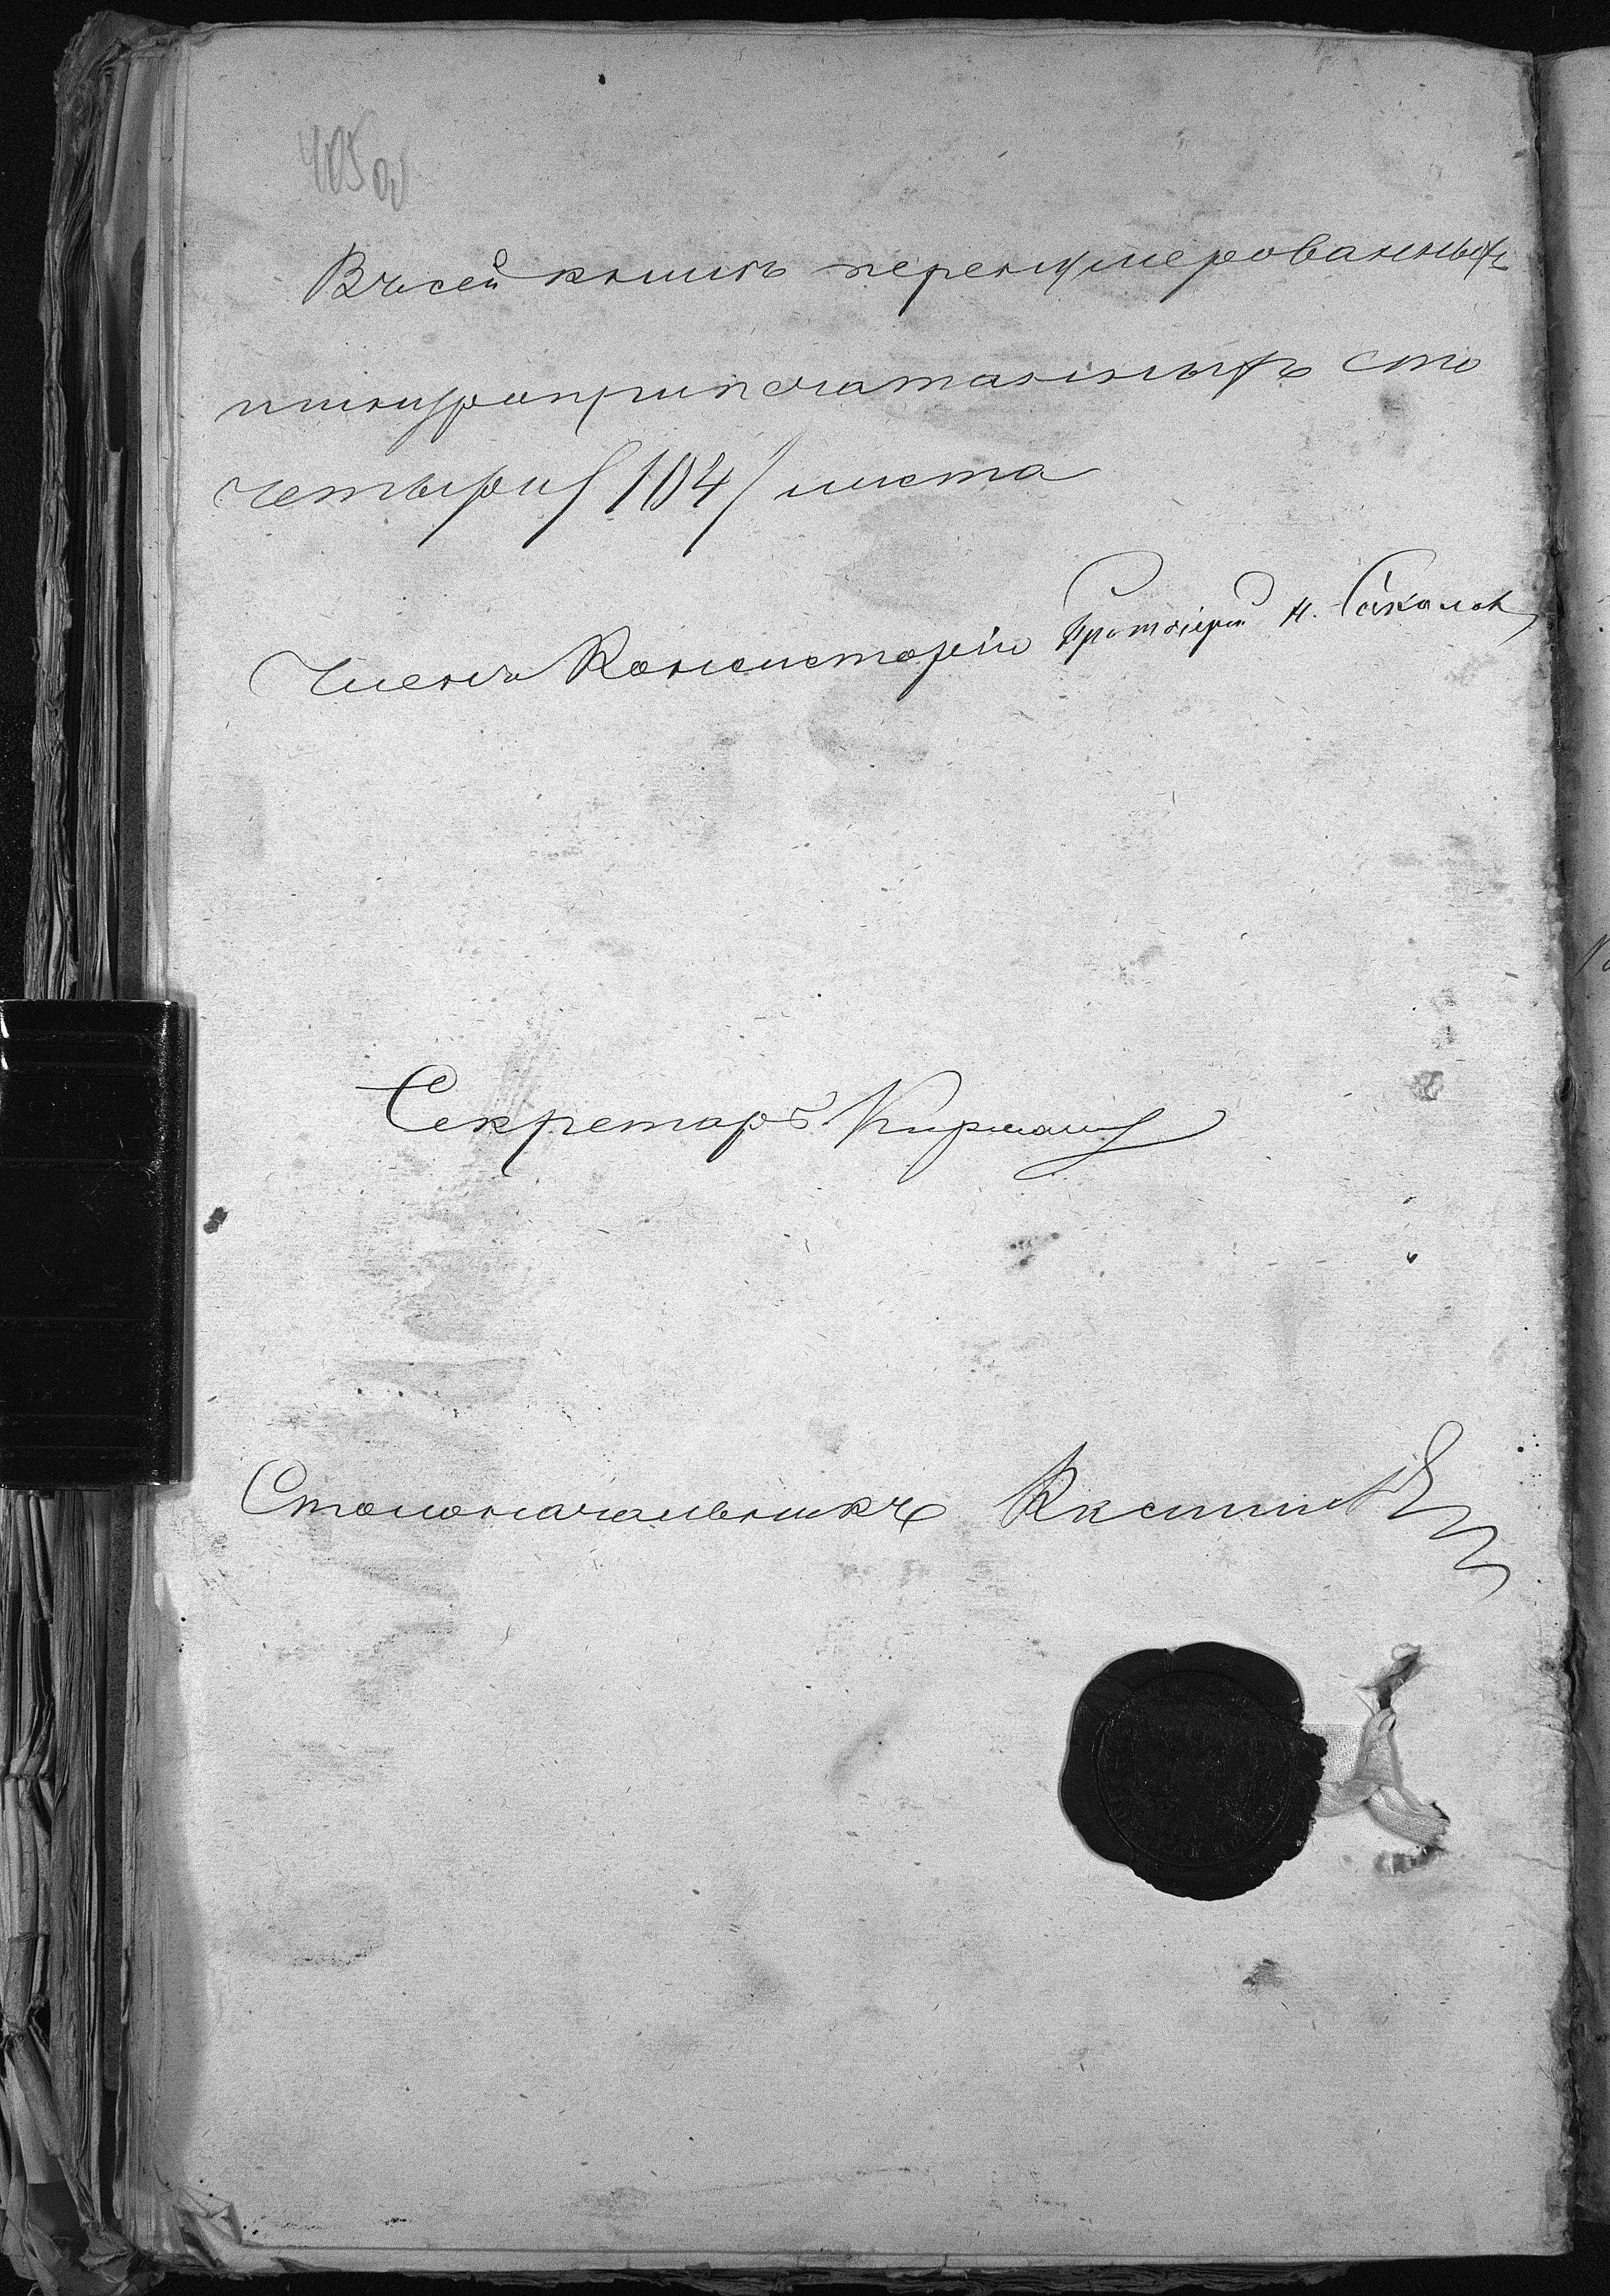 405 об
Въ сей книгѣ перенумерованныхъ
шнуроприпечатанныхъ сто
четыре /104/ листа
Членъ Консисторіи Протоіерей Н. Соколов
Секретарь
Столоначальникъ